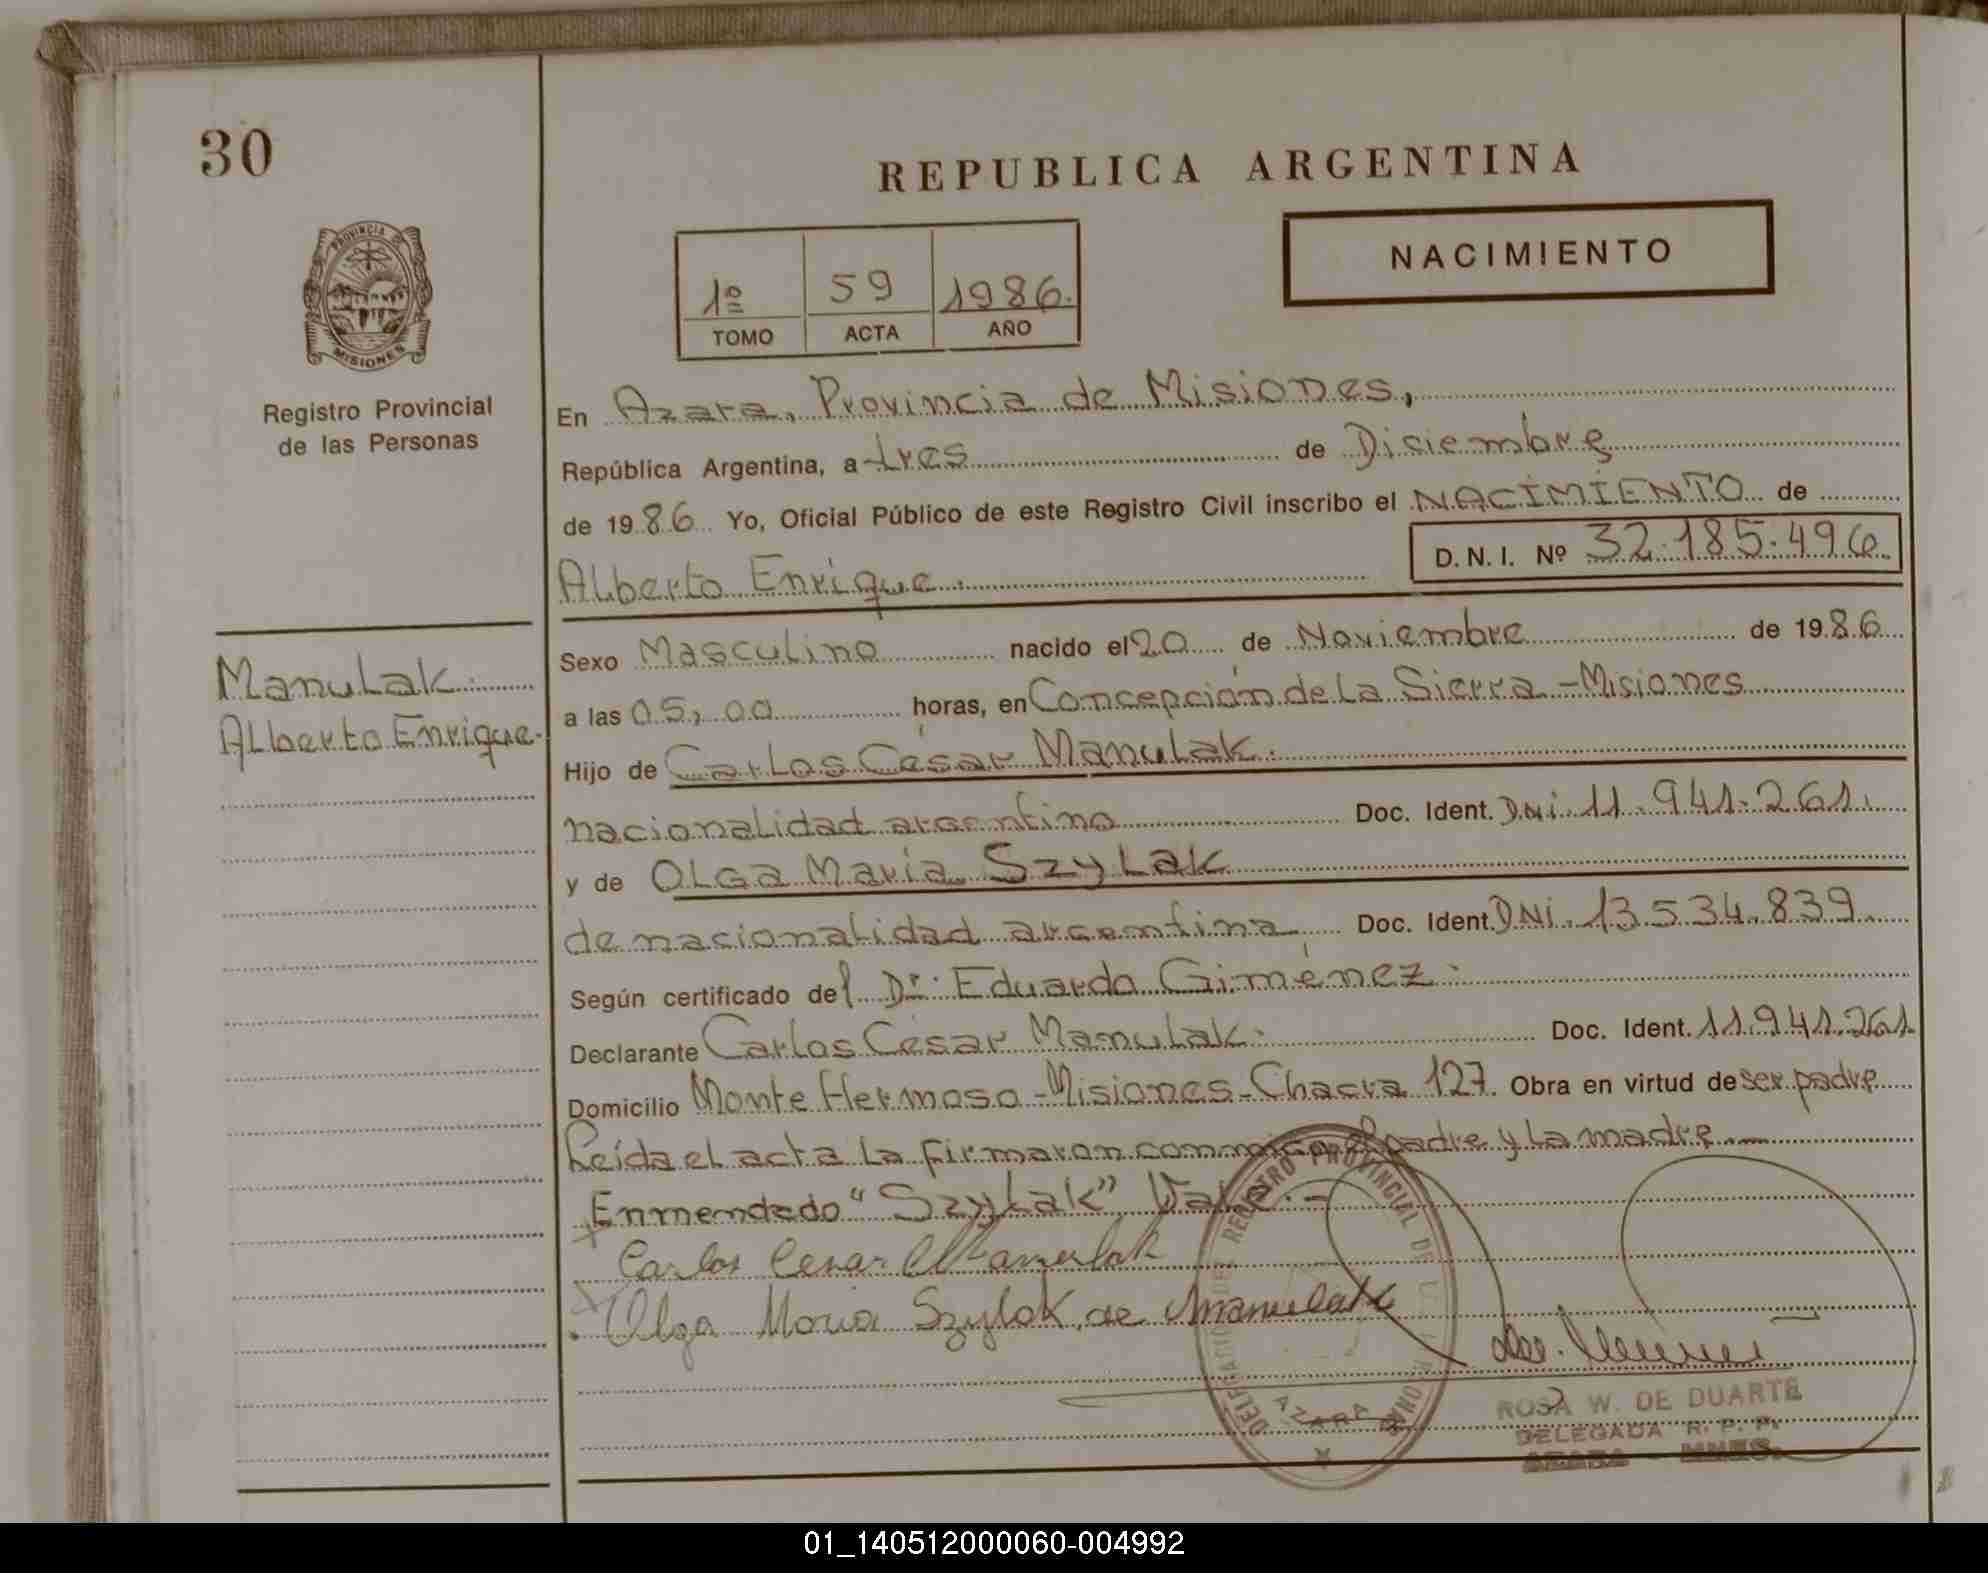 30
REPUBLICA ARGENTINA
NACIMIENTO
1º 59 1986.
TOMO ACTA AÑO
PROVINCIA DE
MISIONES
Registro Provincial
de las Personas
En Azara, Provincia de Misiones,
República Argentina, a tres de Disiembre
de 1986 Yo, Oficial Público de este Registro Civil inscribo el NACIMIENTO de
Alberto Enrique.
D.N.I. Nº 32.185.496
Manulak
Alberto Enrique.
Sexo Masculino nacido el 20 de Noviembre de 1986
a las 05,00 horas, en Concepción de La Sierra - Misiones
Hijo de Carlos César Manulak.
nacionalidad argentino Doc. Ident. DNi. 11.941.261.
y de OLGa Maria Szylak
de nacionalidad argentina Doc. Ident. DNi. 13.534.839
Según certificado del Dr. Eduardo Giménez.
Declarante Carlos César Manulak. Doc. Ident. 11.941.261.
Domicilio Monte Hermoso - Misiones - Chacra 127. Obra en virtud de ser padre
Leída el acta la firmaron conmigo el padre y la madre.—
Enmendado "Szylak" Vale.-
Carlos Cesar Manulak
Olga Maria Szylak de Manulak
DELEGACION DEL REGISTRO PROVINCIAL DE
AZARA
ROSA W. DE DUARTE
DELEGADA R. P. P.
AZARA - MNES.
01_140512000060-004992